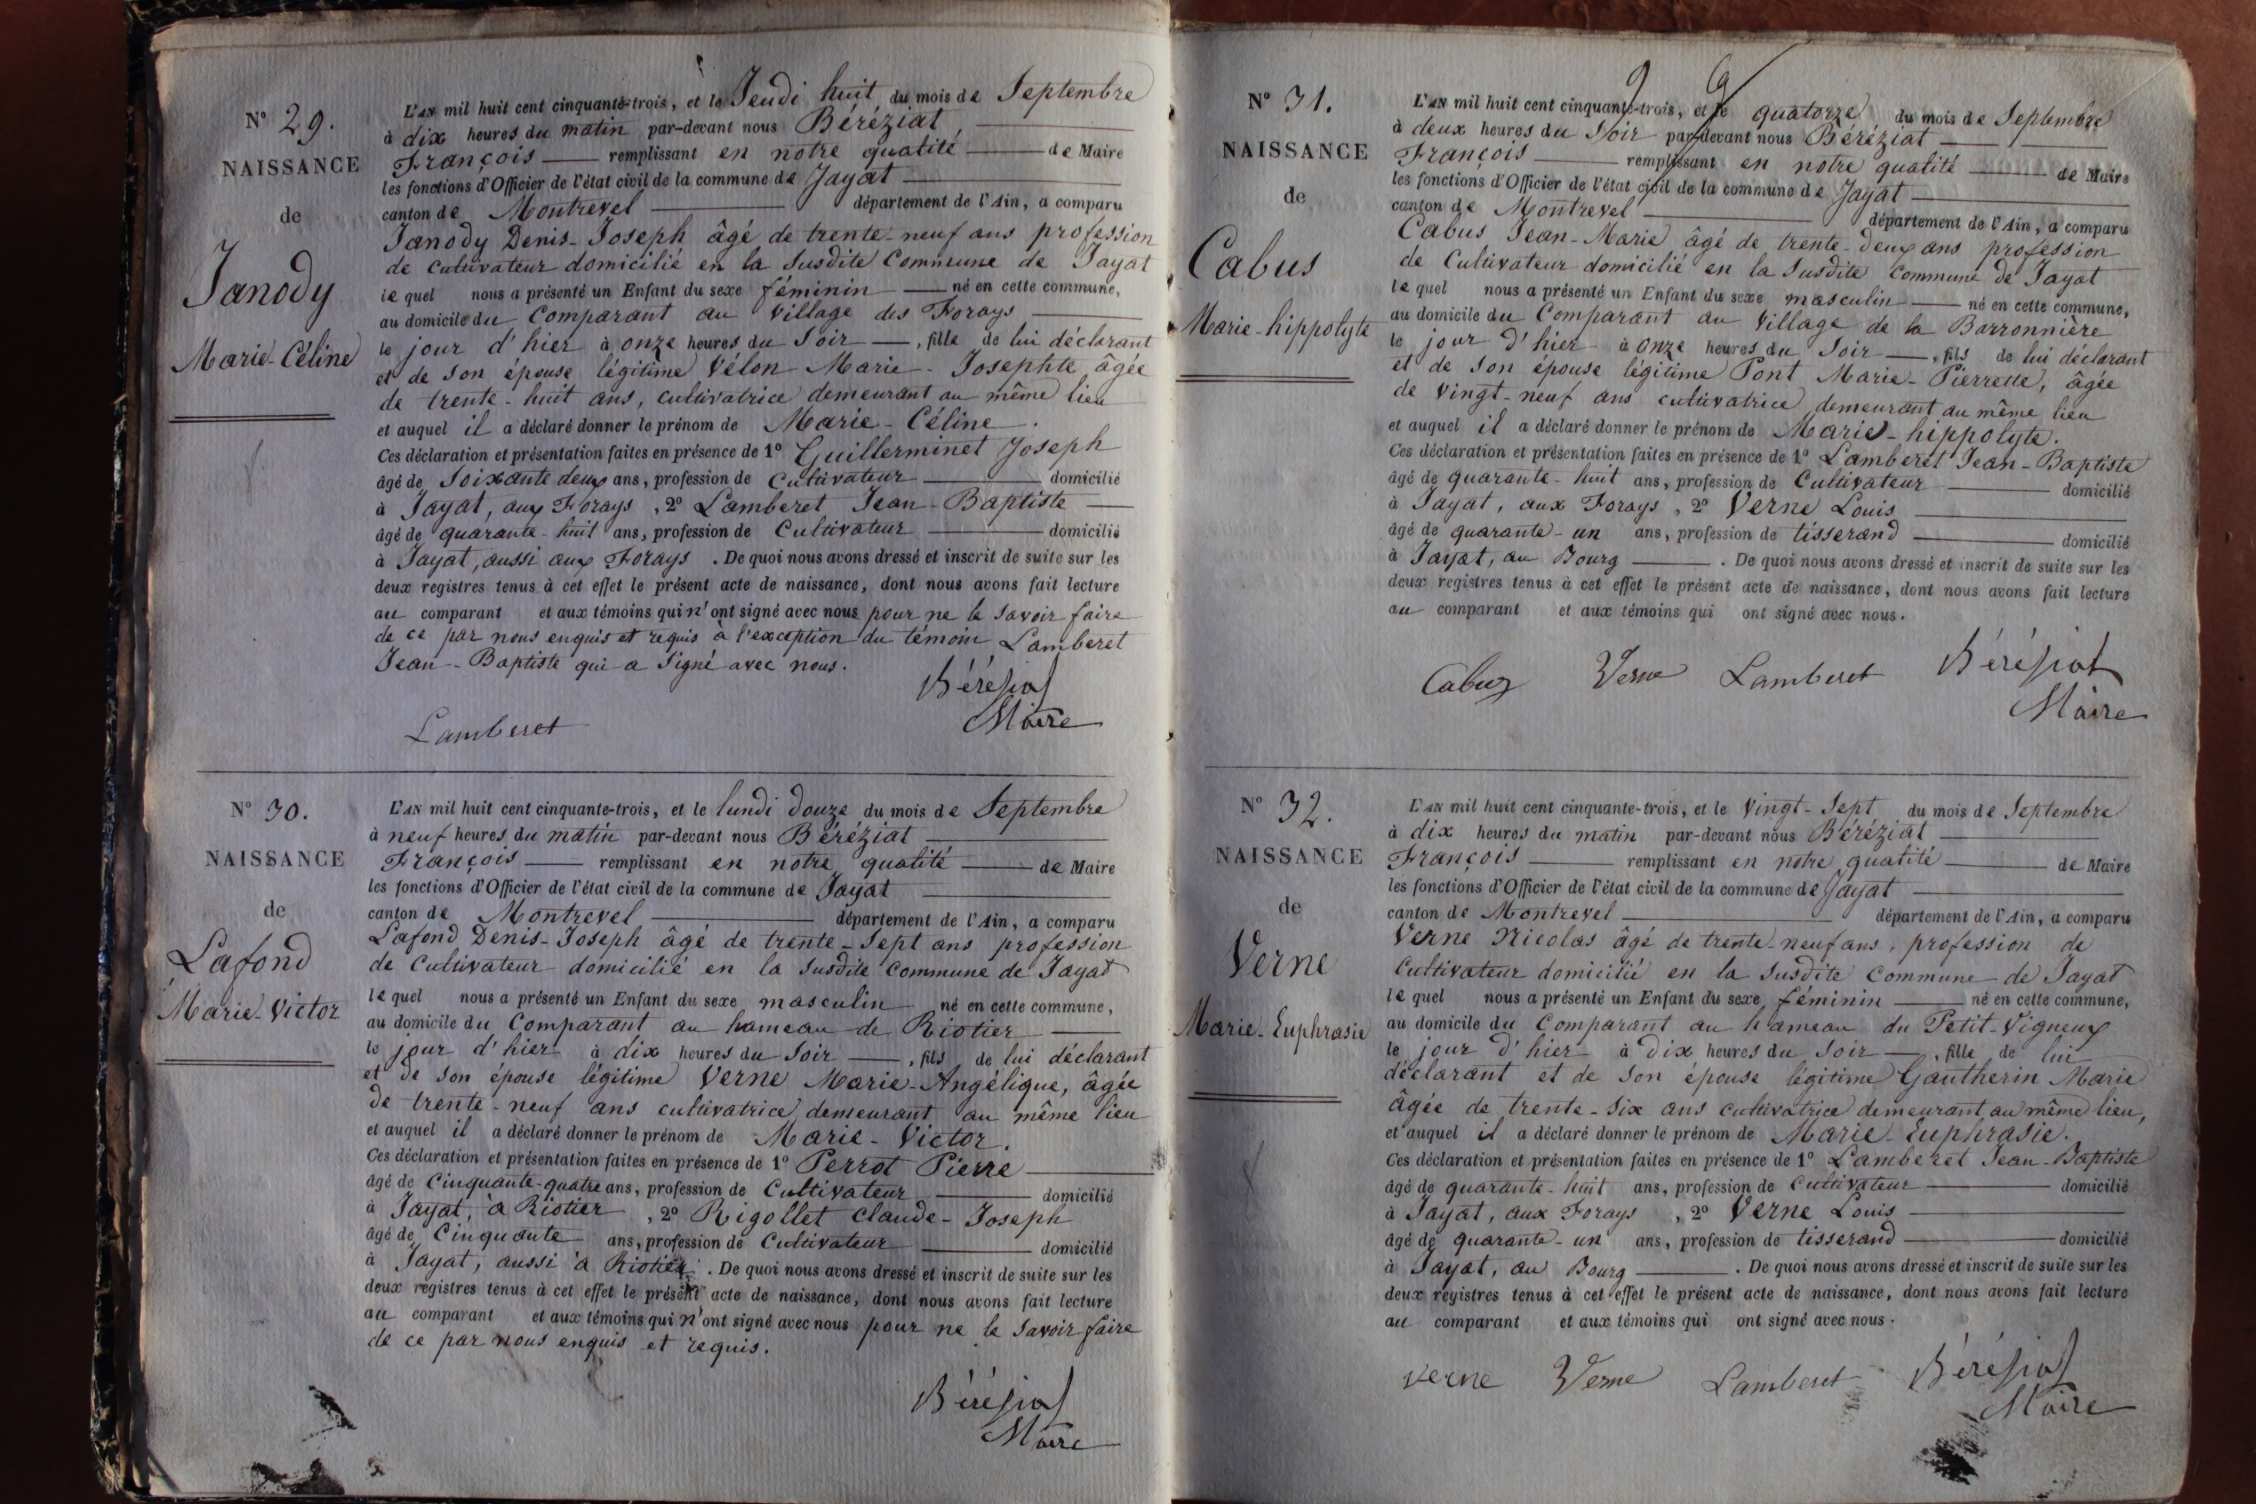 N° 29.
NAISSANCE
de
Janody
Marie-Céline
L'AN mil huit cent cinquante-trois, et le Jeudi huit du mois de Septembre
à dix heures du matin par-devant nous Béréziat
François remplissant en notre qualité de Maire
les fonctions d'Officier de l'état civil de la commune de Jayat
canton de Montrevel département de l'Ain, a comparu
Janody Denis-Joseph âgé de trente-neuf ans profession
de cultivateur domicilié en la susdite Commune de Jayat
le quel nous a présenté un Enfant du sexe féminin né en cette commune,
au domicile du Comparant au village des Forays
le jour d'hier à onze heures du soir, fille de lui déclarant
et de son épouse légitime Vélon Marie-Josephte âgée
de trente-huit ans, cultivatrice demeurant au même lieu
et auquel il a déclaré donner le prénom de Marie-Céline.
Ces déclaration et présentation faites en présence de 1° Guillerminet Joseph
âgé de soixante deux ans, profession de Cultivateur domicilié
à Jayat, aux Forays, 2° Lamberet Jean-Baptiste
âgé de quarante-huit ans, profession de Cultivateur domicilié
à Jayat, aussi aux Forays. De quoi nous avons dressé et inscrit de suite sur les
deux registres tenus à cet effet le présent acte de naissance, dont nous avons fait lecture
au comparant et aux témoins qui n'ont signé avec nous pour ne le savoir faire
de ce par nous enquis et requis à l'exception du témoin Lamberet
Jean-Baptiste qui a signé avec nous.
Béréziat
Maire
Lamberet
N° 30.
NAISSANCE
de
Lafond
Marie-Victor
L'AN mil huit cent cinquante-trois, et le lundi douze du mois de Septembre
à neuf heures du matin par-devant nous Béréziat
François remplissant en notre qualité de Maire
les fonctions d'Officier de l'état civil de la commune de Jayat
canton de Montrevel département de l'Ain, a comparu
Lafond Denis-Joseph âgé de trente-sept ans profession
de cultivateur domicilié en la susdite commune de Jayat
le quel nous a présenté un Enfant du sexe masculin né en cette commune,
au domicile du Comparant au hameau de Riotier
le jour d'hier à dix heures du soir, fils de lui déclarant
et de son épouse légitime Verne Marie-Angélique, âgée
de trente-neuf ans cultivatrice demeurant au même lieu
et auquel il a déclaré donner le prénom de Marie-Victor.
Ces déclaration et présentation faites en présence de 1° Perrot Pierre
âgé de Cinquante-quatre ans, profession de Cultivateur domicilié
à Jayat, à Riotier, 2° Rigollet Claude-Joseph
âgé de Cinquante ans, profession de Cultivateur domicilié
à Jayat, aussi à Riotier. De quoi nous avons dressé et inscrit de suite sur les
deux registres tenus à cet effet le présent acte de naissance, dont nous avons fait lecture
au comparant et aux témoins qui n'ont signé avec nous pour ne le savoir faire
de ce par nous enquis et requis.
Béréziat
Maire
N° 31.
NAISSANCE
de
Cabus
Marie-hippolyte
L'AN mil huit cent cinquante-trois, et le quatorze du mois de Septembre
à deux heures du soir par-devant nous Béréziat
François remplissant en notre qualité de Maire
les fonctions d'Officier de l'état civil de la commune de Jayat
canton de Montrevel département de l'Ain, a comparu
Cabus Jean-Marie âgé de trente-deux ans profession
de Cultivateur domicilié en la susdite commune de Jayat
le quel nous a présenté un Enfant du sexe masculin né en cette commune,
au domicile du Comparant au village de la Barronnière
le jour d'hier à onze heures du soir, fils de lui déclarant
et de son épouse légitime Pont Marie-Pierrette, âgée
de vingt-neuf ans cultivatrice demeurant au même lieu
et auquel il a déclaré donner le prénom de Marie-hippolyte.
Ces déclaration et présentation faites en présence de 1° Lamberet Jean-Baptiste
âgé de quarante-huit ans, profession de Cultivateur domicilié
à Jayat, aux Forays, 2° Verne Louis
âgé de quarante-un ans, profession de tisserand domicilié
à Jayat, au Bourg. De quoi nous avons dressé et inscrit de suite sur les
deux registres tenus à cet effet le présent acte de naissance, dont nous avons fait lecture
au comparant et aux témoins qui ont signé avec nous.
Cabuz Verne Lamberet Béréziat
Maire
N° 32.
NAISSANCE
de
Verne
Marie-Euphrasie
L'AN mil huit cent cinquante-trois, et le vingt-sept du mois de Septembre
à dix heures du matin par-devant nous Béréziat
François remplissant en notre qualité de Maire
les fonctions d'Officier de l'état civil de la commune de Jayat
canton de Montrevel département de l'Ain, a comparu
Verne Nicolas âgé de trente-neuf ans, profession de
Cultivateur domicilié en la susdite commune de Jayat
le quel nous a présenté un Enfant du sexe féminin né en cette commune,
au domicile du Comparant au hameau du Petit-Vigneux
le jour d'hier à dix heures du soir, fille de lui
déclarant et de son épouse légitime Gautherin Marie
âgée de trente-six ans cultivatrice demeurant au même lieu,
et auquel il a déclaré donner le prénom de Marie-Euphrasie.
Ces déclaration et présentation faites en présence de 1° Lamberet Jean-Baptiste
âgé de quarante-huit ans, profession de cultivateur domicilié
à Jayat, aux Forays, 2° Verne Louis
âgé de quarante-un ans, profession de tisserand domicilié
à Jayat, au Bourg. De quoi nous avons dressé et inscrit de suite sur les
deux registres tenus à cet effet le présent acte de naissance, dont nous avons fait lecture
au comparant et aux témoins qui ont signé avec nous.
Verne Verne Lamberet Béréziat
Maire